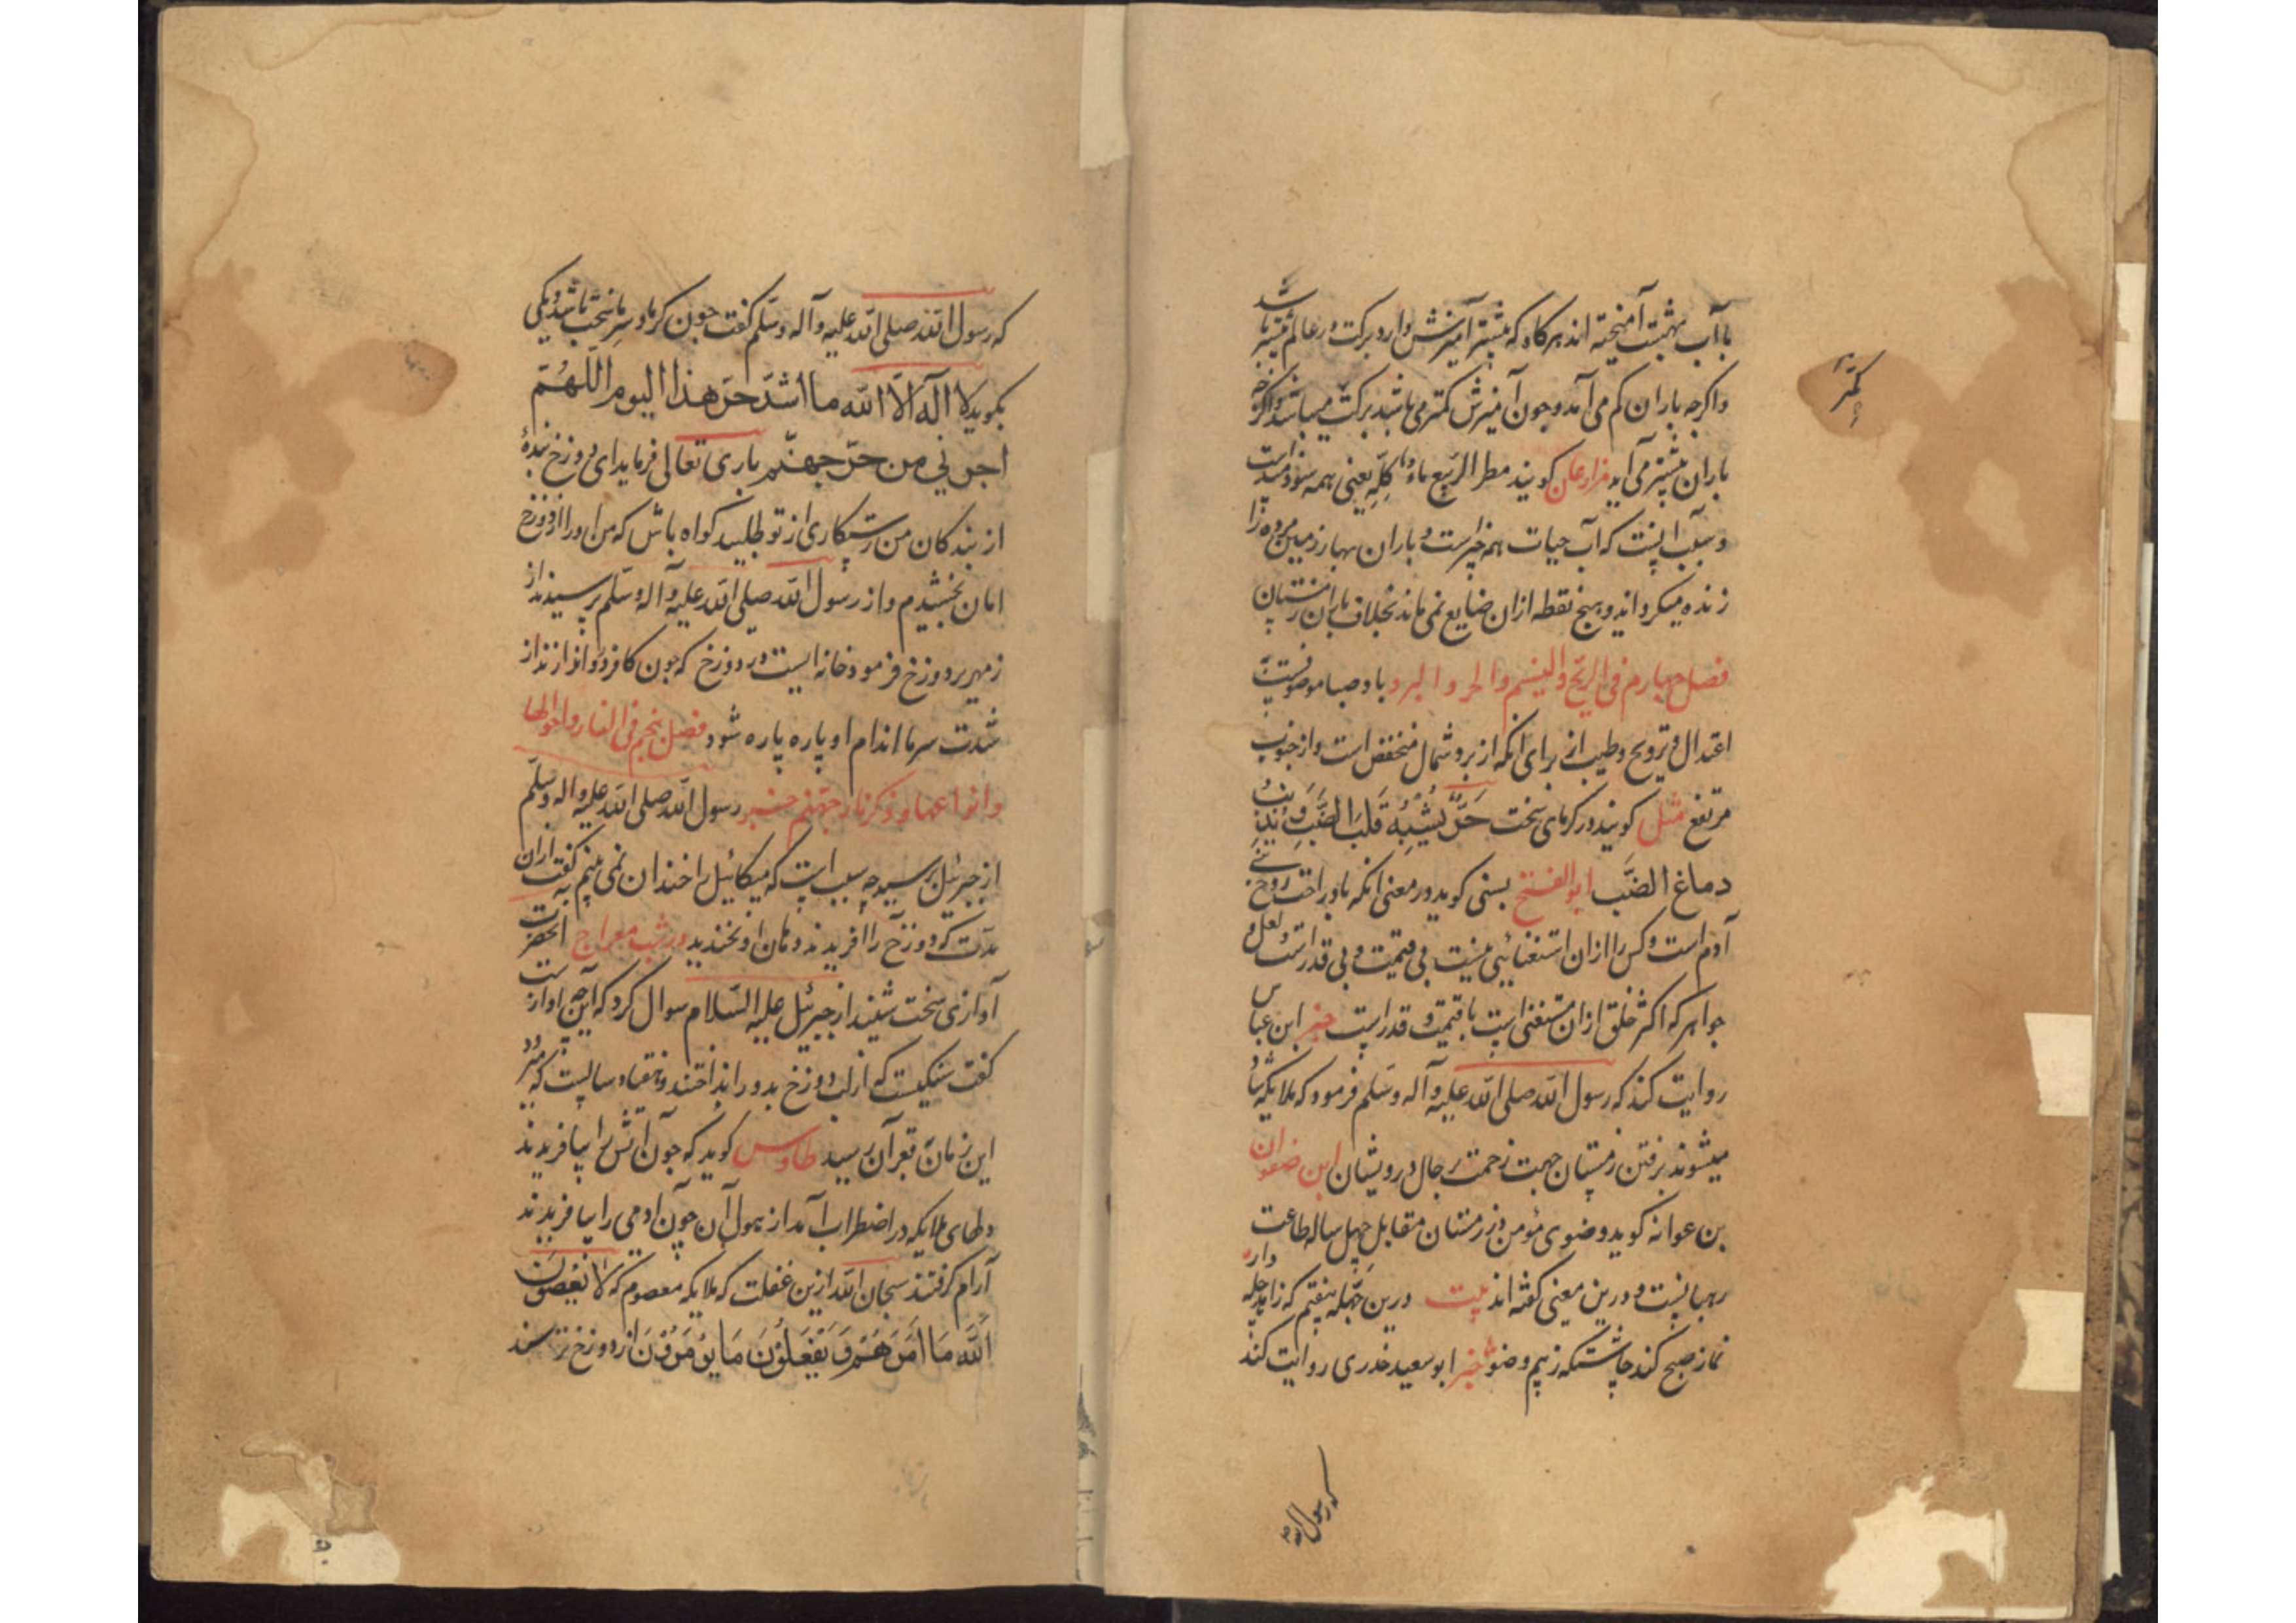 با آب بهشت آمیخته اند هرگاه که بیشتر آمیزش دارد برکت در عالم بیشتر باشد
واکرچه باران کم می آمد و چون آمیزش کمتر می باشد برکت میباشد واکرچه
باران بیشتر می آید مزارعان کویند مطر الربیع ماء کله یعنی همه سودمند است
و سبب اینست که آب حیات همه خیرست و باران بهار زمین مرده را
زنده میکرداند و هیچ نقطه ازان ضایع نمی ماند بخلاف باران زمستان
فصل چهارم فی الریح والنسیم والحر والبرد باد صبا موصوفست
اعتدال و ترویح وطیب از برای انکه از برد شمال منخفض است و از جنوب
مرتفع مثل کویند در کرمای سخت حر یشبه قلب الضب و یذیب
دماغ الضب ابو الفتح بستی کوید در معنی انکه باد راحت روح
آدم است و کس را ازان استغنایی نیست بی قیمت و بی قدرست و لعل و
جواهر که اکثر خلق ازان مستغنی است با قیمت و قدر است خبر ابن عباس
روایت کند که رسول الله صلی الله علیه وآله وسلم فرمود که ملایکه شاد
میشوند برفتن زمستان جهت زحمت رجال درویشان ابن صفوان
بن عوانه کوید وضوی مؤمن در زمستان مقابل چهل ساله طاعت
رهبانیست و درین معنی کفته اند بیت درین چهله بیفتیم که زاهد چله دارد
نماز صبح کند چاشتکه ز بیم وضو خبر ابو سعید خدری روایت کند
که رسول الله
کمتر
که رسول الله صلی الله علیه وآله وسلم کفت چون کرما و سرما سخت باشد و یکی
بکوید لا اله الا الله ما اشد حر هذا الیوم اللهم
اجرنی من حر جهنم باری تعالی فرماید ای دوزخ بندهٔ
از بندکان من رستکاری از تو طلبید کواه باش که من او را از دوزخ
امان بخشیدم و از رسول الله صلی الله علیه وآله وسلم پرسیدند از
زمهریر دوزخ فرمود خانه ایست در دوزخ که چون کافر دروانداز ند از
شدت سرما اندام او پاره پاره شود فصل پنجم فی النار واحوالها
وانواعها و ذکر نار جهنم خبر رسول الله صلی الله علیه واله وسلم
از جبرئیل پرسید چه سبب است که میکائیل را خندان نمی بینم کفت ازان
مدت که دوزخ را آفریدند دهان او نخندید در شب معراج انحضرت
آوازی سخت شنید از جبرئیل علیه السلام سوال کرد که این چه اوازست
کفت سنکیست که از لب دوزخ بدور انداختند و هفتاد سالست که میرود
این زمان بقعر آن رسید طاوس کوید که چون آتش را بیافریدند
دلهای ملایکه در اضطراب آمد از هول آن چون ادمی را بیافریدند
آرام کرفتند سبحان الله ازین غفلت که ملایکه معصوم که لا یعصون
الله ما امرهم و یفعلون ما یؤمرون از دوزخ ترسند